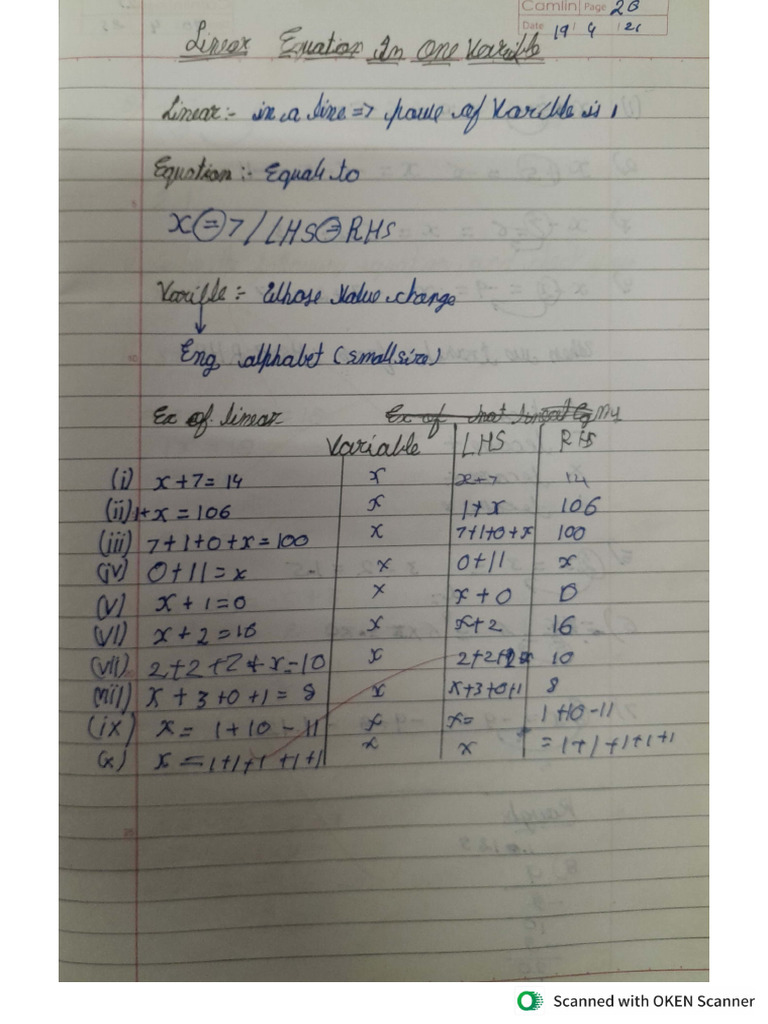 Camlin Page 20
Date 19 / 4 / 21
Linear Equation In One Variable
Linear:- in a line => powe of Varible is 1
Equation:- Equals to
x = 7 / LHS = RHS
Varible:- Whose Value change
Eng. alphabet (small size)
Ex of linear Ex of not
Variable LHS RHS
(i) x + 7 = 14 x x+7 14
(ii) 1+x = 106 x 1+x 106
(iii) 7+1+0+x = 100 x 7+1+0+x 100
(iv) 0+11 = x x 0+11 x
(v) x + 1 = 0 x x+0 0
(vi) x + 2 = 16 x x+2 16
(vii) 2+2+2+x = 10 x 2+2+2+x 10
(viii) x + 3 + 0 + 1 = 8 x x+3+0+1 8
(ix) x = 1 + 10 - 11 x x= 1+10-11
(x) x = 1+1+1+1+1 x x = 1+1+1+1+1
Scanned with OKEN Scanner